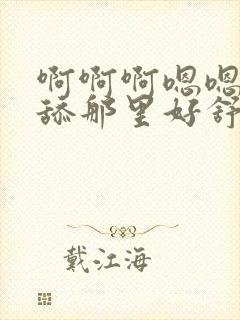 啊啊啊嗯嗯
舔那里好舒
戴江海